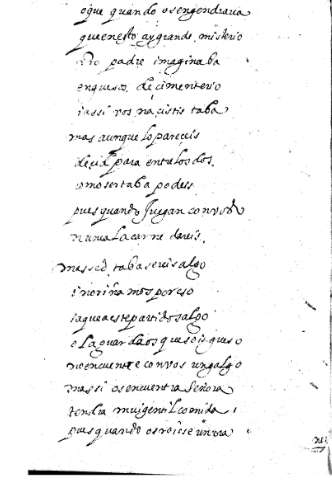 o que quando os engendraua
que en esto ay grande misterio
padre imaginaba
en guesos de cimenterio
i assi vos nacistis taba
mas aunque lo pareceis
decid para entre los dos
como ser taba podeis
pues quando juegan con vos
nunca la carne dareis
mas sed taba sereis algo
i no riñamos por eso
ia que a este partido salgo
o la guardaos que sois gueso
no encuentre con vos un galgo
mas si os encuentra señora
tendra mui gentil comida
pues quando os roiese